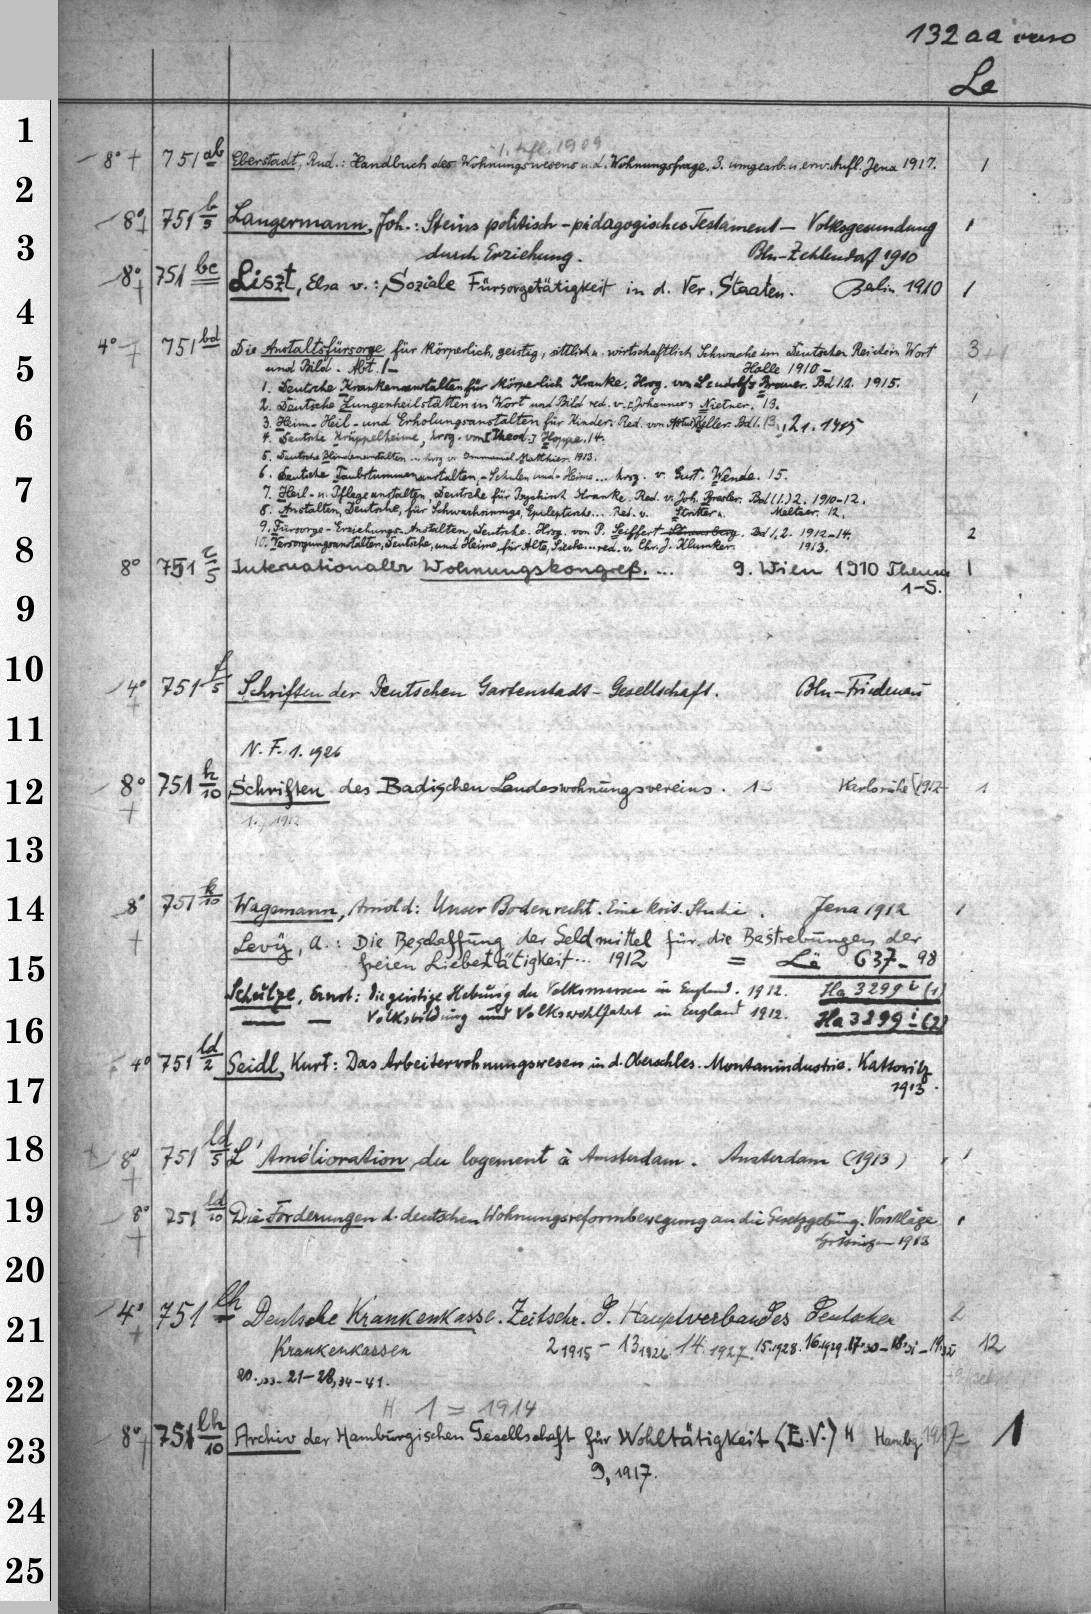 132 aa verso
Le
1
1. Aufl. 1909
8° + 751 ab Eberstadt, Rud.: Handbuch des Wohnungswesens u. d. Wohnungsfrage. 3. umgearb. u. erw. Aufl. Jena 1917. 1
2
8° + 751 b/5 Langermann, Joh.: Steins politisch-pädagogisches Testament – Volksgesundung 1
3
durch Erziehung. Bln-Zehlendorf 1910
8° + 751 bc Liszt, Elsa v.: Soziale Fürsorgetätigkeit in d. Ver. Staaten. Berlin 1910 1
4
4° + 751 bd Die Anstaltsfürsorge für körperlich, geistig, sittlich u. wirtschaftlich Schwache im Deutschen Reich in Wort 3
5
und Bild. Abt. 1– Halle 1910–
1. Deutsche Krankenanstalten für körperlich Kranke. Hrsg. von Ludolf Brauer. Bd 1.2. 1915.
2. Deutsche Lungenheilstätten in Wort und Bild red. v. [Johannes] Nietner. 13. 1
6
3. Heim- Heil- und Erholungsanstalten für Kinder. Red. von Keller. Bd 1. 2 1. 1925
4. Deutsche Krüppelheime, hrsg. von [Theod.] Hoppe. 14.
5. Deutsche Blindenanstalten hrsg v. Immanuel Matthies. 1913.
7
6. Deutsche Taubstummenanstalten, -Schulen und -Heime... hrsg. v. Gust. Wende. 15.
7. Heil- u. Pflegeanstalten, Deutsche für Psychisch Kranke. Red. v. Joh. Bresler. Bd (1.) 2. 1910-12.
8. Anstalten, Deutsche, für Schwachsinnige, Epileptische... Red. v. Stritter u. Meltzer. 12.
8
9. Fürsorge-Erziehungs-Anstalten, Deutsche. Hrsg. von P. Seiffert Bd 1.2. 1912-14. 2
10. Versorgungsanstalten, Deutsche, und Heime für Alte, Sieche... red. v. Chr. J. Klumker. 1913.
8° 751 c/5 Internationaler Wohnungskongreß. ... 9. Wien 1910 Thema 1
1-5.
9
10
4° + 751 f/5 Schriften der Deutschen Gartenstadt-Gesellschaft. Bln-Friedenau
11
N.F. 1. 1926
12
8° + 751 h/10 Schriften des Badischen Landeswohnungsvereins. 1– Karlsruhe [1912– 1
1., 1912
13
14
8° + 751 k/10 Wagemann, Arnold: Unser Bodenrecht. Eine krit. Studie. Jena 1912 1
Levÿ, A.: Die Beschaffung der Geldmittel für die Bestrebungen der
15
freien Liebestätigkeit... 1912 = Lë 637-98
Schulze, Ernst: Die geistige Hebung der Volksmassen in England. 1912. Ha 3299 i (1)
16
— — Volksbildung und Volkswohlfahrt in England 1912. Ha 3299 i (2)
4° 751 ld/2 Seidl, Kurt: Das Arbeiterwohnungswesen in d. Oberschles. Montanindustrie. Kattowitz
17
1913.
18
8° + 751 ld/5 L'Amélioration du logement à Amsterdam. Amsterdam (1913) 1
19
8° + 751 ld/10 Die Forderungen d. deutschen Wohnungsreformbewegung an die Gesetzgebung. Vorschläge 1
1913
20
21
4° + 751 lh Deutsche Krankenkasse. Zeitschr. d. Hauptverbandes Deutscher 2
Krankenkassen 2 1915 – 13 1926. 14. 1927. 15.1928. 16.1929. 17.30 – 18.31 – 19.32 12
22
20.,33- 21-28,34-41.
H 1 = 1914
23
8° + 751 lh/10 Archiv der Hamburgischen Gesellschaft für Wohltätigkeit (E.V.) H Hambg 1917– 1
9, 1917.
24
25